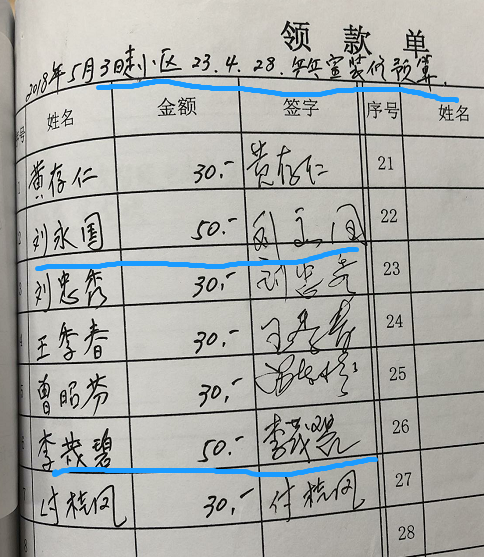 领款单
2018年5月3日走小区 23.4.28.
号 姓名 金额 签字 序号 姓名
1 黄存仁 30.- 黄存仁 21
2 刘永国 50.- 刘永国 22
3 刘忠秀 30.- 刘忠秀 23
4 王季春 30.- 王季春 24
5 曹昭芬 30.- 25
6 李茂碧 50.- 李茂碧 26
7 付桂凤 30.- 付桂凤 27
8 28